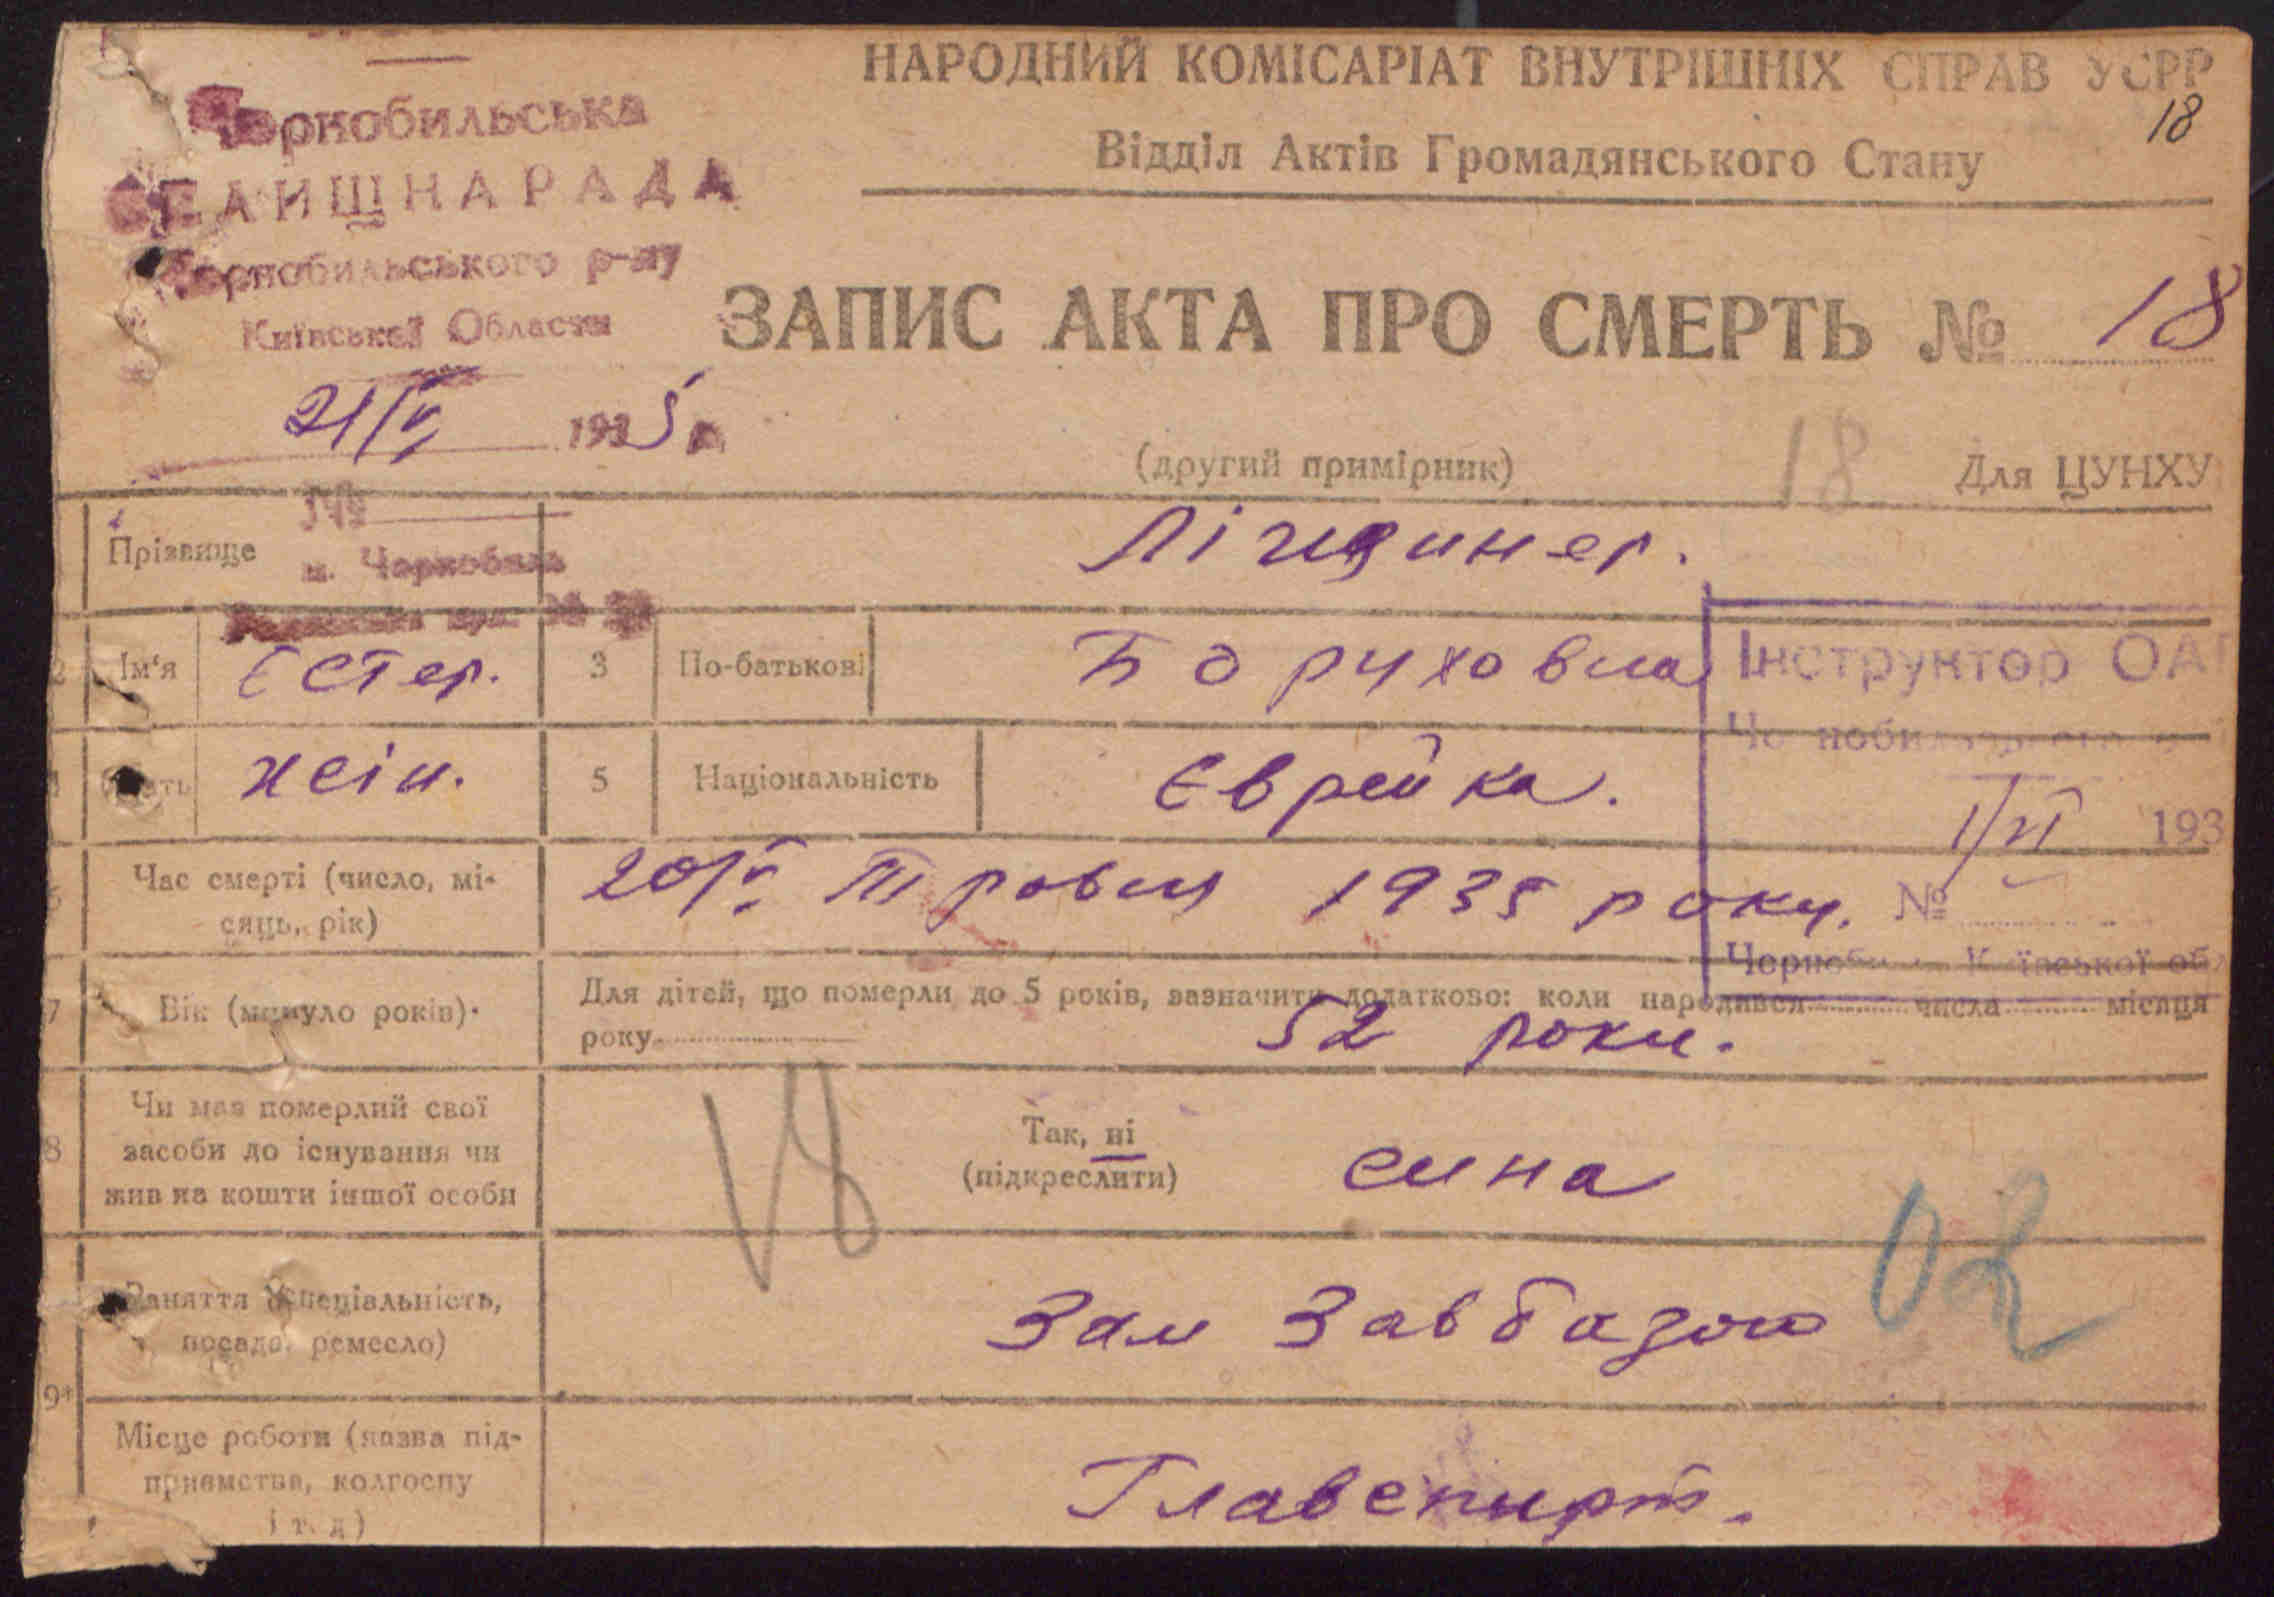 НАРОДНИЙ КОМІСАРІАТ ВНУТРІШНІХ СПРАВ УСРР
18
Відділ Актів Громадянського Стану
Чернобильська
СЕЛИЩНА РАДА
Чернобильського р-ну
Київської Области
21/V 1935 р.
№
м. Чернобиль
ЗАПИС АКТА ПРО СМЕРТЬ № 18
(другий примірник)
18
Для ЦУНХУ
Прізвище
2 Ім'я Естер. 3 По-батькові Боруховна
Інструктор ОАГ
жін. 5 Національність Єврейка.
1/VI 193
№
Київської об
6 Час смерті (число, мі-
сяць, рік)
20/V Травня 1935 року.
7 Вік (минуло років).
Для дітей, що померли до 5 років, зазначити додатково: коли народився числа місяця
року
52 роки.
8 Чи мав померлий свої
засоби до існування чи
жив на кошти іншої особи
18
Так, ні
(підкреслити)
сина
02
9* Заняття (спеціальність,
посада, ремесло)
Зам Завбазою
Місце роботи (назва під-
приємства, колгоспу
і т. д)
Главспирт.